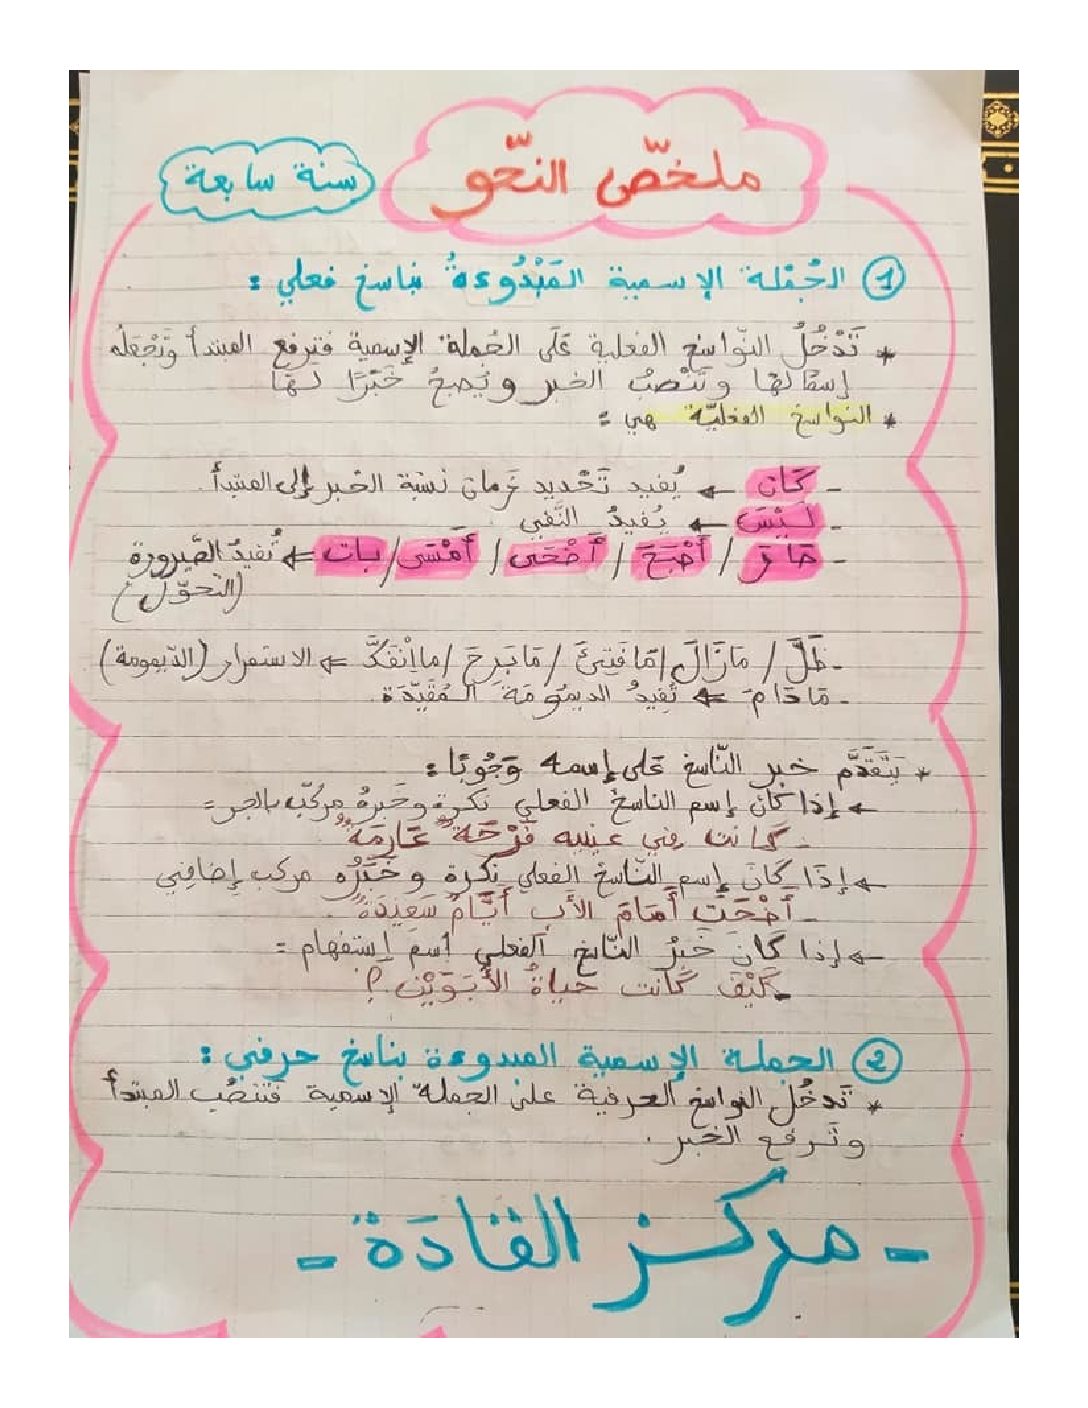 ملخّص النّحو
سنة سابعة
1 الجُمْلة الإسمية المَبْدُوءةُ بناسخ فعلي :
* تَدْخُلُ النّواسخ الفعلية عَلَى الجُملة الإسمية فترفع المبتدأ وتَجْعَلُه
إسمًا لهَا وتَنْصبُ الخبر ويُصبحُ خَبَرًا لهَا
* النواسخ الفعليّة هي :
- كَانَ ← يُفيد تَحْديد زمان نسبة الخبر إلى المبتدأ.
- لَيْسَ ← يُفيدُ النَّفي
- صَارَ / أَصْبَحَ / أَضْحَى / أَمْسَى / بات ⇐ تُفيدُ الصَّيرورة
(التحوّل)
- ظَلَّ / مَازَالَ / مَا فَتِئَ / مَا بَرِحَ / ما اِنْفَكَّ ⇐ الاستمرار (الدّيمومة)
- مَادَامَ ⇐ تُفيدُ الديمُومَة المُقَيَّدَة.
* يَتَقَدَّم خبر النّاسخ عَلى إسمه وَجُوبًا :
← إذا كَانَ إسم الناسخ الفعلي نكرة وخَبرهُ مركّب بالجر =
- كَانت في عينيه فَرْحَة" عَارِمَة"
← إذَا كَانَ إسم النّاسخ الفعلي نكرة وخَبَرُه مركب إضافِي
- أَضْحَتْ أَمَامَ الأب أيَّامٌ سَعِيدَة".
← إذا كَانَ خَبَرُ النّاسخ الفعلي اسمَ إستفهام =
- كَيْفَ كَانَت حَياةُ الأَبَوَيْن ؟
2 الجملة الإسمية المبدوءة بناسخ حرفي :
* تَدخُلُ النواسخ الحرفية على الجملة الإسمية فتنصُب المبتدأ
وتَرفع الخبر.
- مركز القادَة -